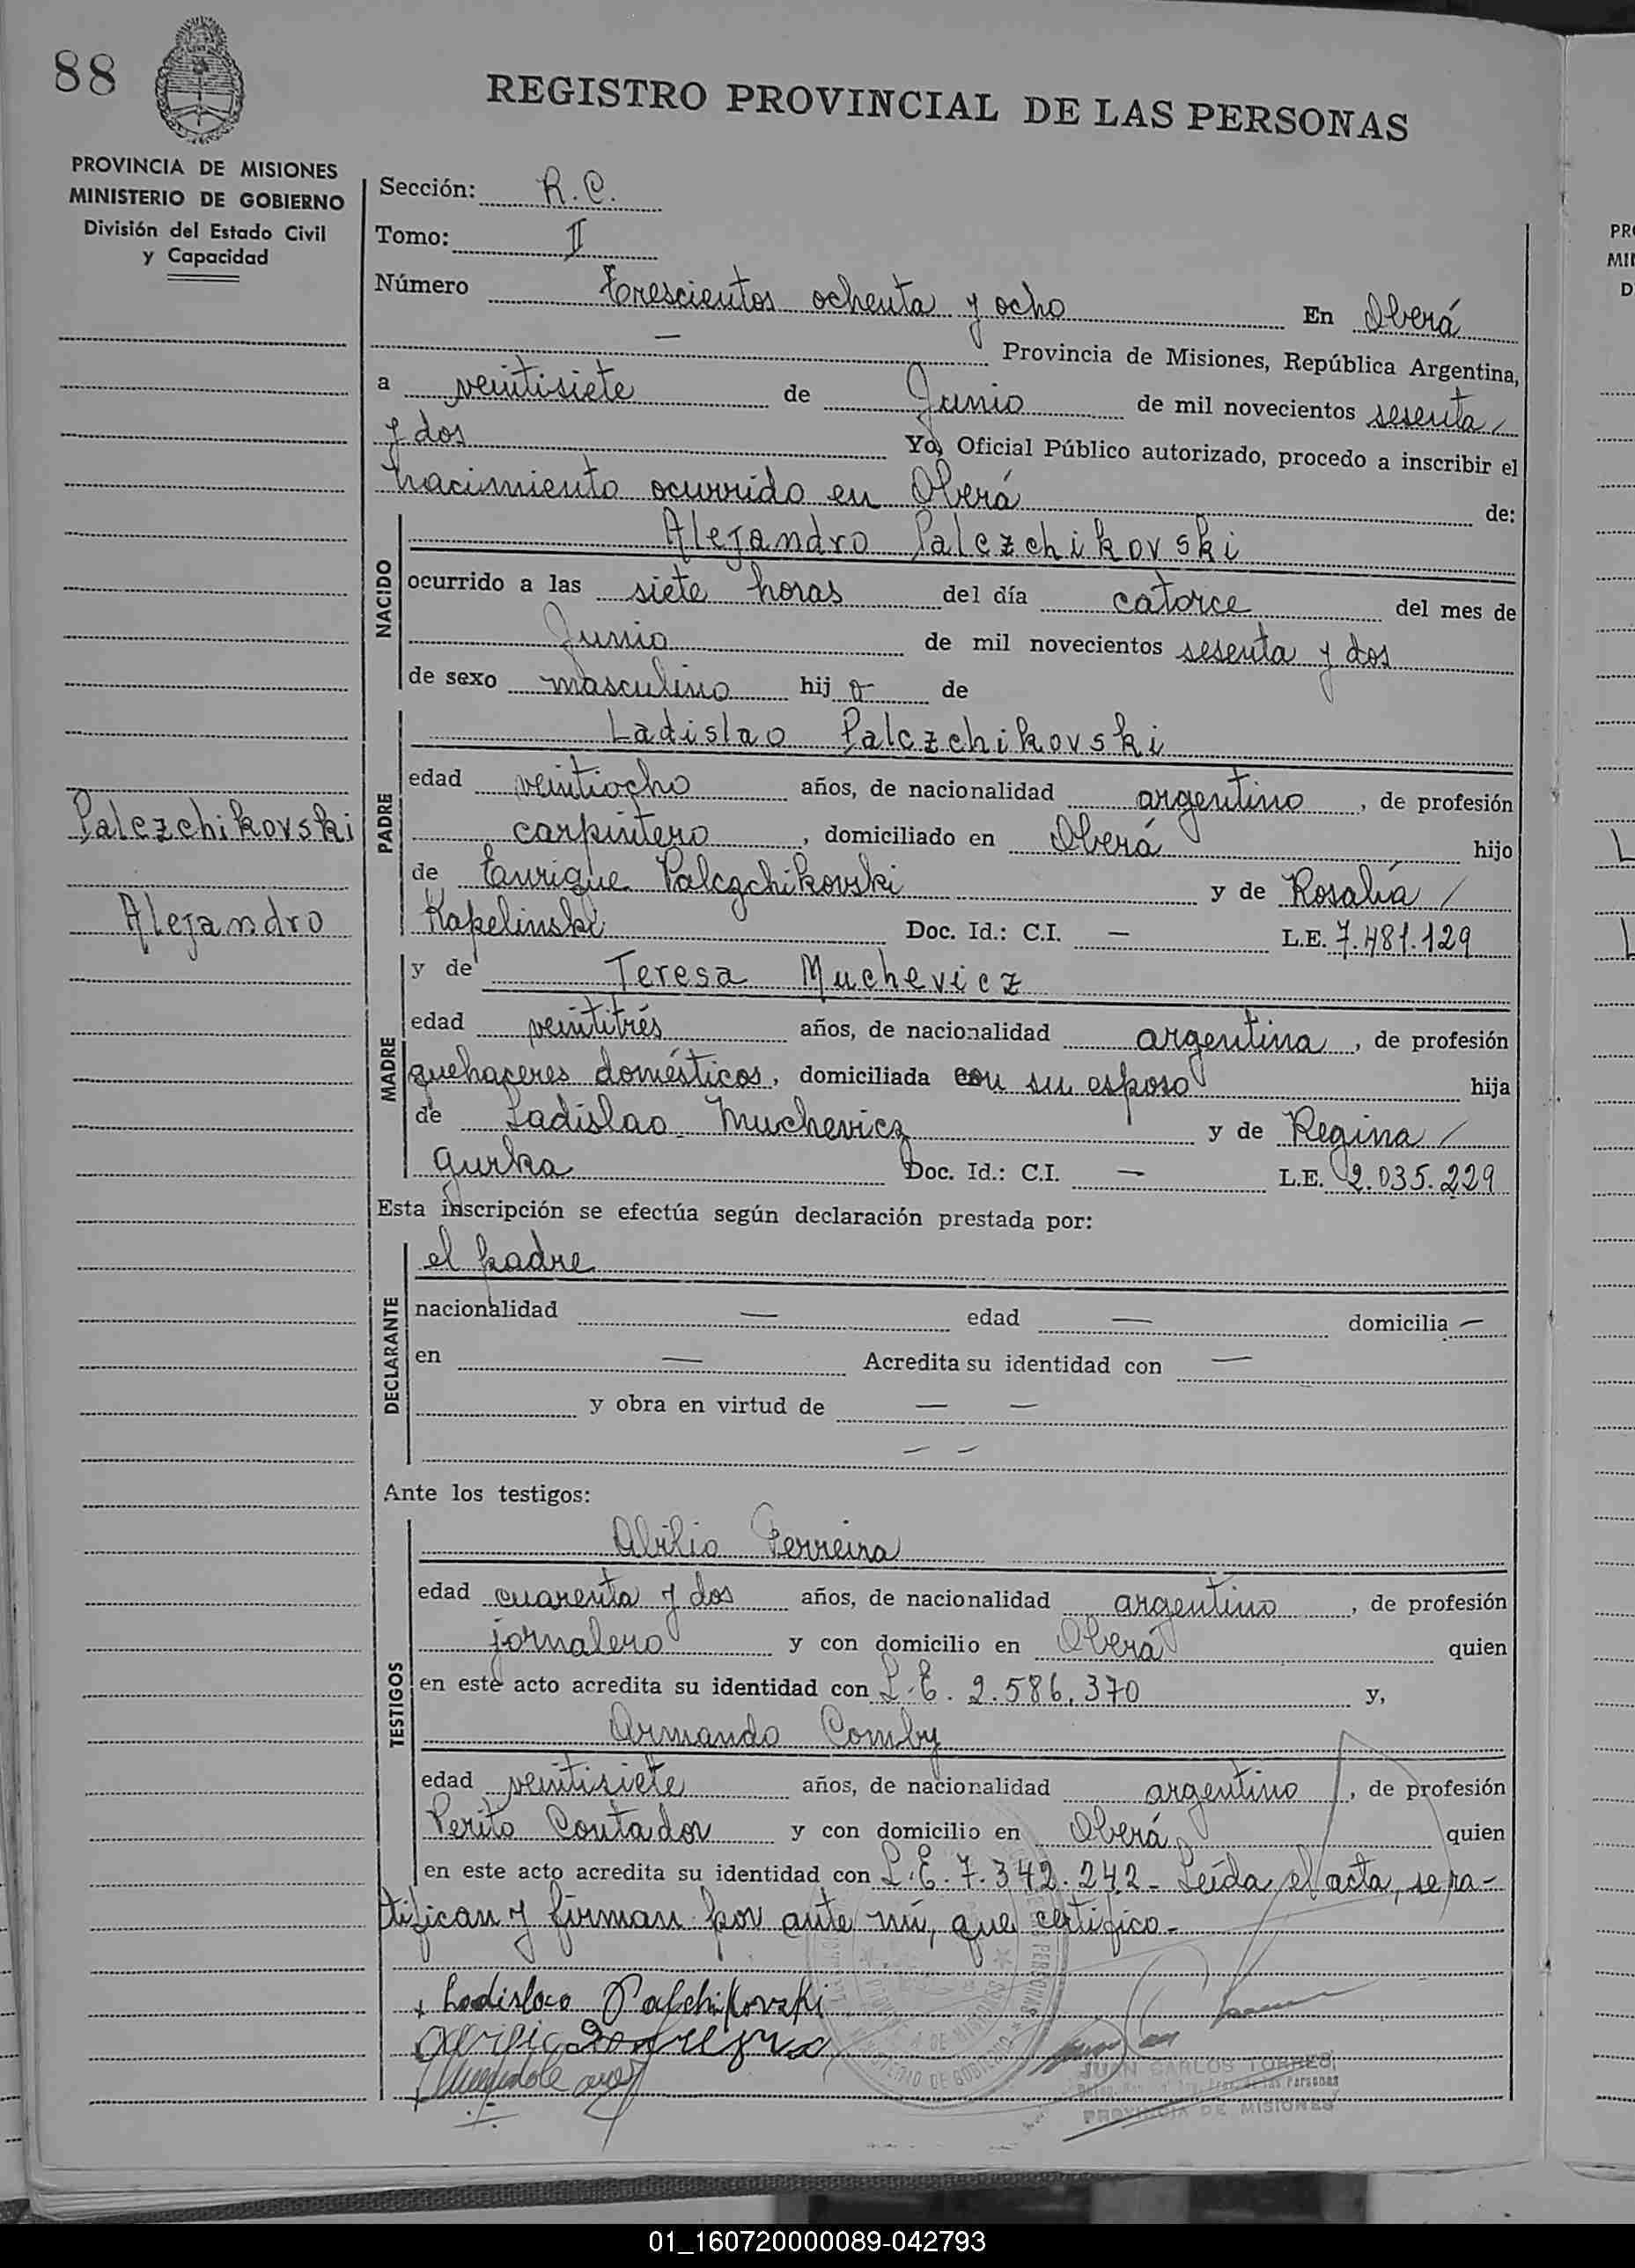 88
REGISTRO PROVINCIAL DE LAS PERSONAS
PROVINCIA DE MISIONES
MINISTERIO DE GOBIERNO
División del Estado Civil
y Capacidad
Sección: R.C.
Tomo: II
Número Trescientos ochenta y ocho En Oberá
— Provincia de Misiones, República Argentina,
a veintisiete de Junio de mil novecientos sesenta /
y dos Yo, Oficial Público autorizado, procedo a inscribir el
nacimiento ocurrido en Oberá de:
NACIDO
Alejandro Palczchikovski
ocurrido a las siete horas del día catorce del mes de
Junio de mil novecientos sesenta y dos
de sexo masculino hijo de
PADRE
Ladislao Palczchikovski
edad veintiocho años, de nacionalidad argentino, de profesión
carpintero, domiciliado en Oberá hijo
de Enrique Palczchikovski y de Rosalía /
Kapelinski Doc. Id.: C.I. — L.E. 7.481.129
Palczchikovski
Alejandro
MADRE
y de Teresa Muchevicz
edad veintitrés años, de nacionalidad argentina, de profesión
quehaceres domésticos, domiciliada con su esposo hija
de Ladislao Muchevicz y de Regina /
Gurka Doc. Id.: C.I. — L.E. 2.035.229
Esta inscripción se efectúa según declaración prestada por:
DECLARANTE
el padre
nacionalidad — edad — domicilia —
en — Acredita su identidad con —
y obra en virtud de — —
— —
Ante los testigos:
TESTIGOS
Abilio Ferreira
edad cuarenta y dos años, de nacionalidad argentino, de profesión
jornalero y con domicilio en Oberá quien
en este acto acredita su identidad con L.E. 2.586.370 y,
Armando Comby
edad veintisiete años, de nacionalidad argentino, de profesión
Perito Contador y con domicilio en Oberá quien
en este acto acredita su identidad con L.E. 7.342.242 - Leída el acta, se ra-
tifican y firman por ante mí, que certifico.-
Ladislao Palchikovski
JUAN CARLOS TORRES
de las Personas
PROVINCIA DE MISIONES
PR
MI
D
01_160720000089-042793